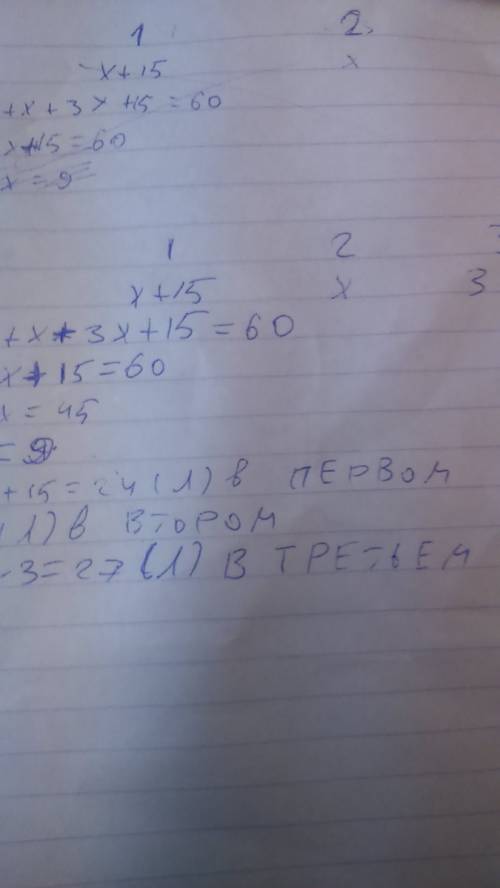 1 2.
x+15 x
+x+3x+15=60
x+15=60
x=9
1 2 3
x+15 x 3
+x+3x+15=60
x+15=60
x=45
=9
+15=24(Л) в ПЕРВОМ
(Л) в ВТОРОМ
·3=27(Л) В ТРЕТЬЕМ